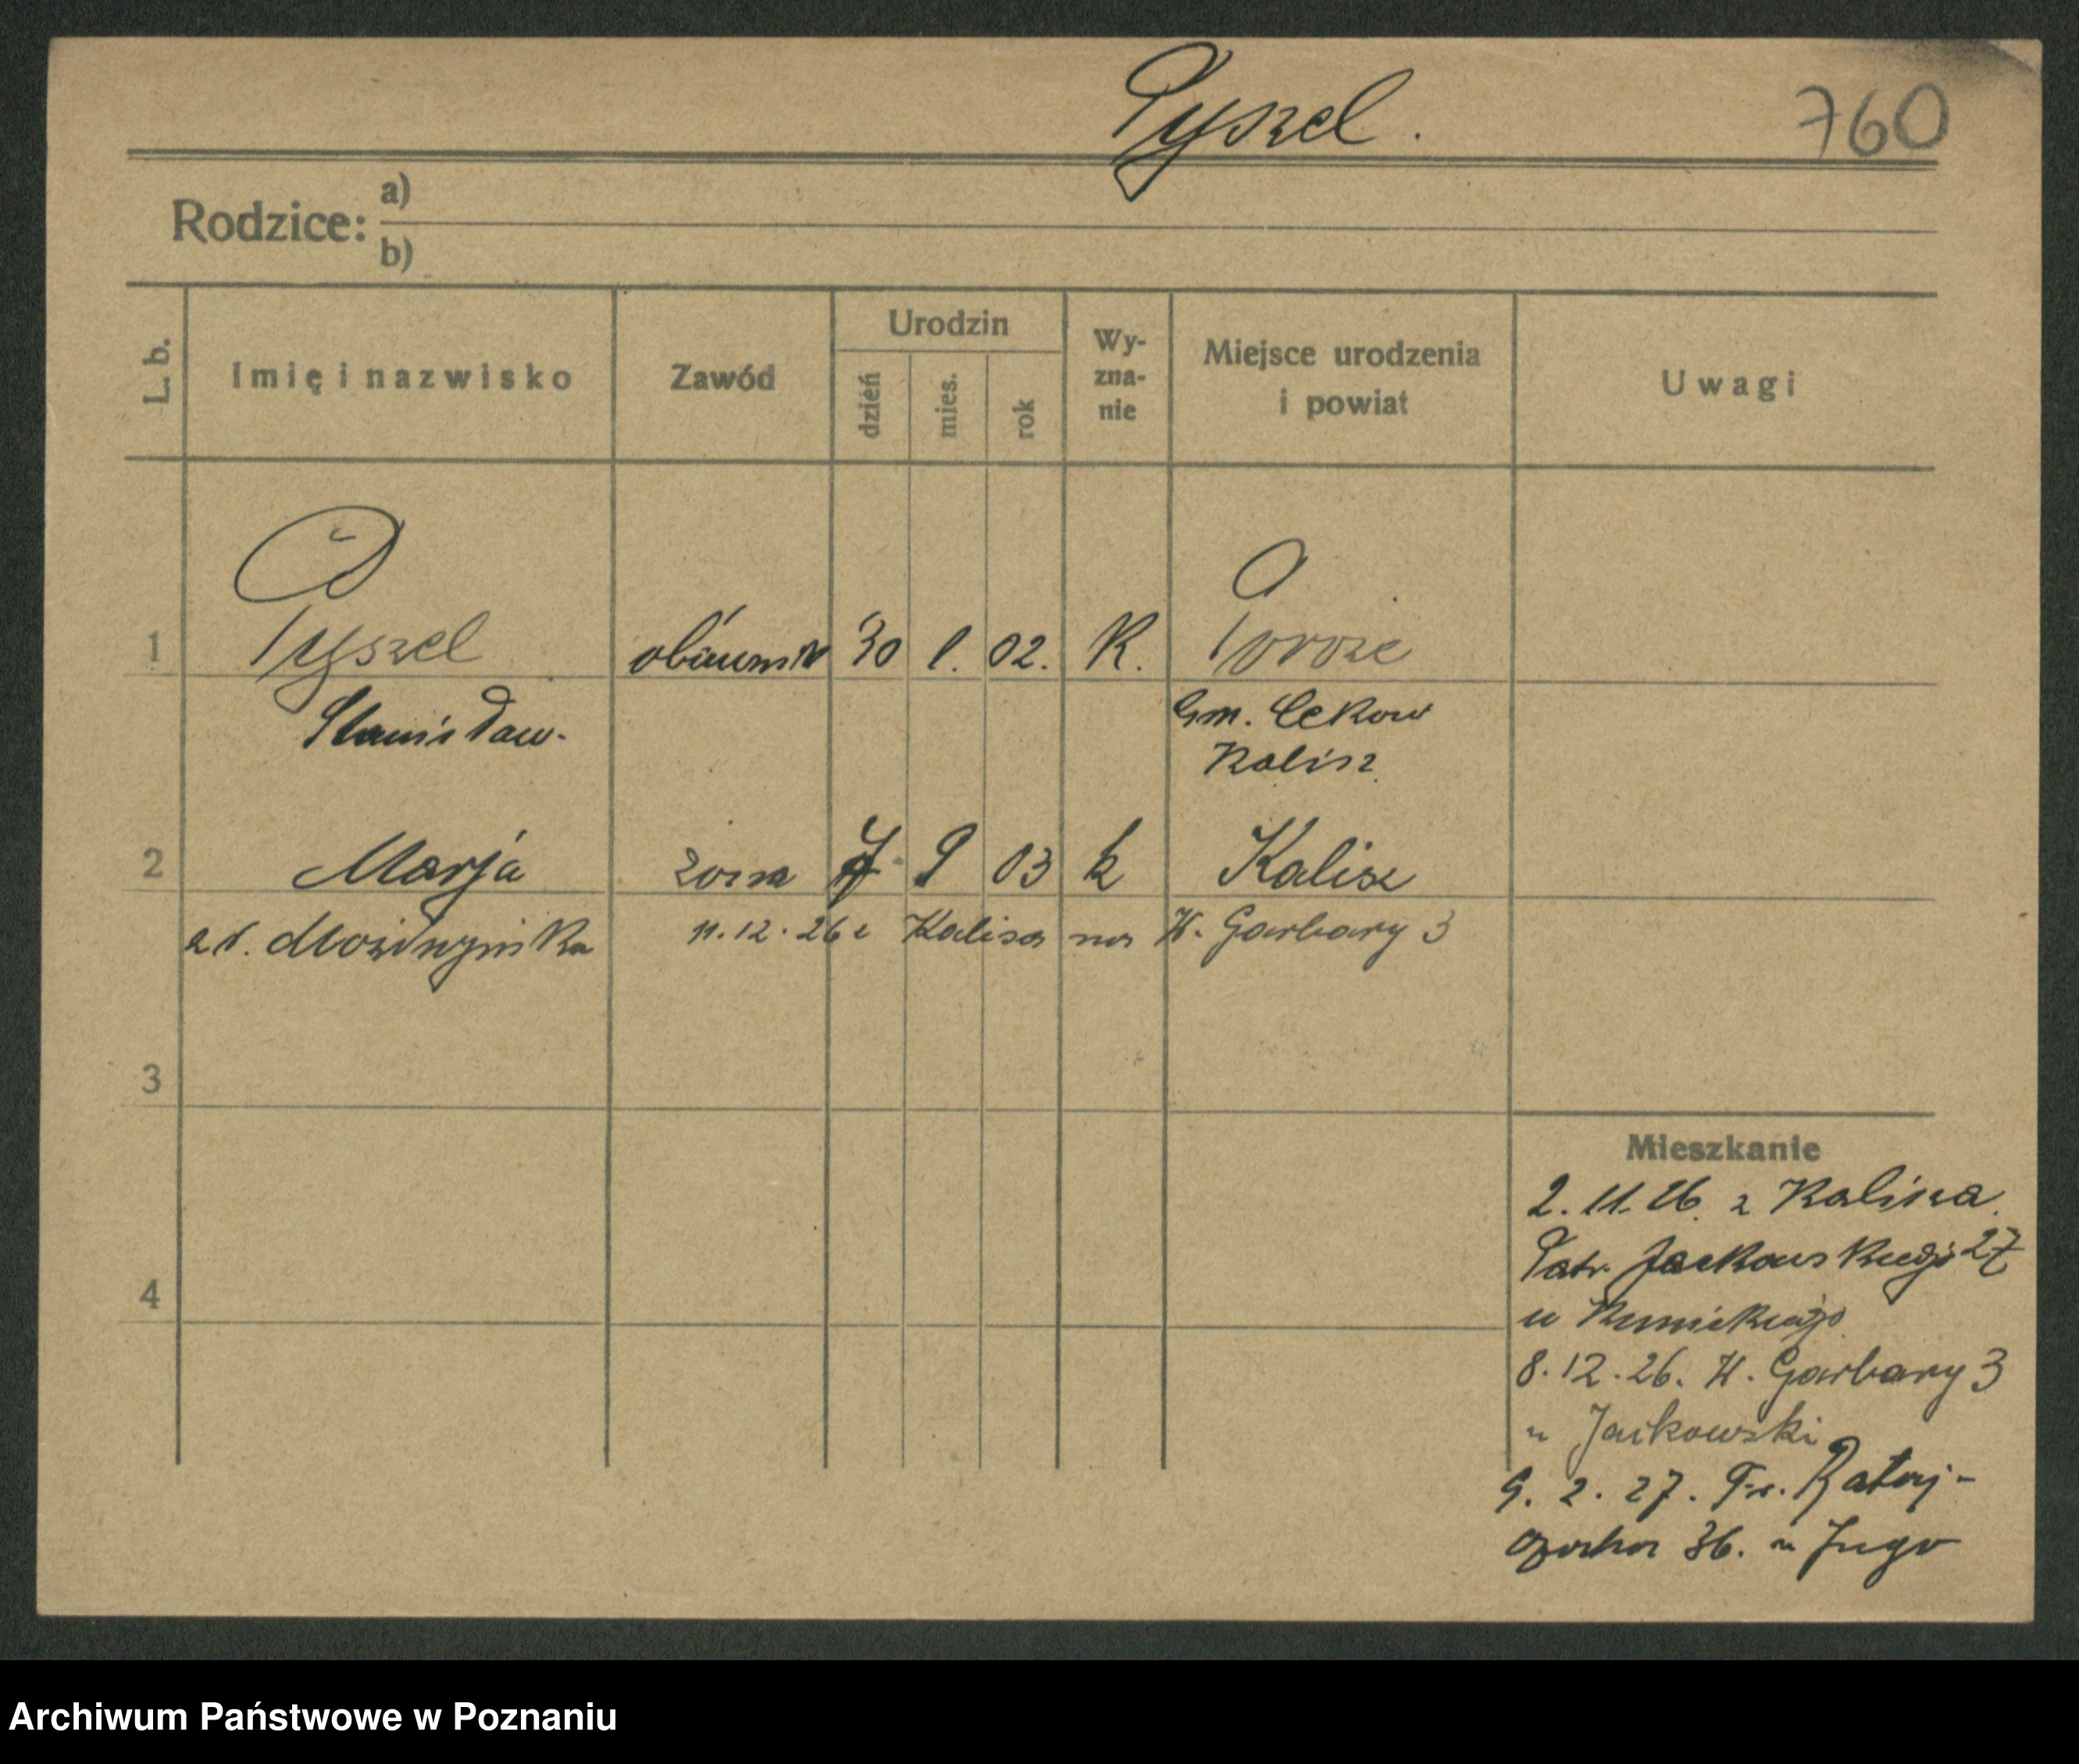 Pyszel.
760
Rodzice: a)
b)
L. b.
Imię i nazwisko
Zawód
Urodzin
dzień
mies.
rok
Wy-
zna-
nie
Miejsce urodzenia
i powiat
Uwagi
1 Pyszel 30 1. 02. K.
Stanisław.
Gm. Cekow
Kalisz
2 Marja żona 9 03 k Kalisz
11.12.26 z Kalisza na W. Garbary 3
3
4
Mieszkanie
2. 11. 26. z Kalisza.
Patr. Jackowskiego 27
u
8.12.26. W. Garbary 3
u Jackowski
9. 2. 27. Fr. Rataj-
czaka 36. u
Archiwum Państwowe w Poznaniu